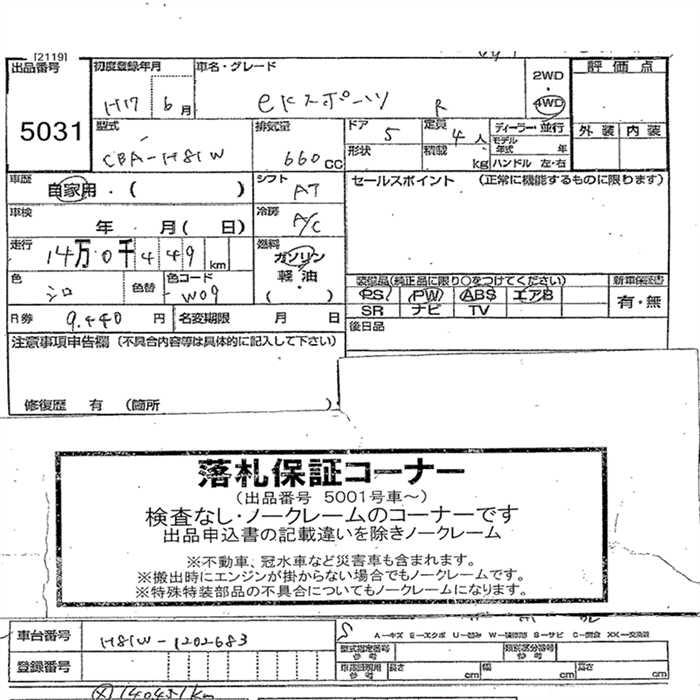 [2119]
出品番号 初度登録年月 車名・グレード 2WD 評価点
H17 6月 eKスポーツ R 4WD
5031 型式 排気量 ドア 定員 ディーラー・並行 外装 内装
CBA-H81W 660cc 5 4人 モデル年式 年
形状 積載 kg ハンドル 左・右
車歴 自家用・( ) シフト AT セールスポイント (正常に機能するものに限ります)
車検 年 月( 日) 冷房 A/C
走行 14万0千449km 燃料 ガソリン・軽油 ( )
色 シロ 色替 色コード W09 装備品(純正品に限り○をつけてください) 新車保証書
PS PW ABS エアB 有・無
SR ナビ TV
R券 9.440円 名変期限 月 日 後日品
注意事項申告欄 (不具合内容等は具体的に記入して下さい)
修復歴 有 (箇所 )
落札保証コーナー
(出品番号 5001号車~)
検査なし・ノークレームのコーナーです
出品申込書の記載違いを除きノークレーム
※不動車、冠水車など災害車も含まれます。
※搬出時にエンジンが掛からない場合でもノークレームです。
※特殊特装部品の不具合についてもノークレームになります。
車台番号 H81W-1202683
A-キズ E-エクボ U-凹み W-補修跡 S-サビ C-腐食 XX-交換済
登録番号 型式指定番号 参考 類別区分番号 参考
車両証明用 参考 長さ cm 幅 cm 高さ cm
140451km